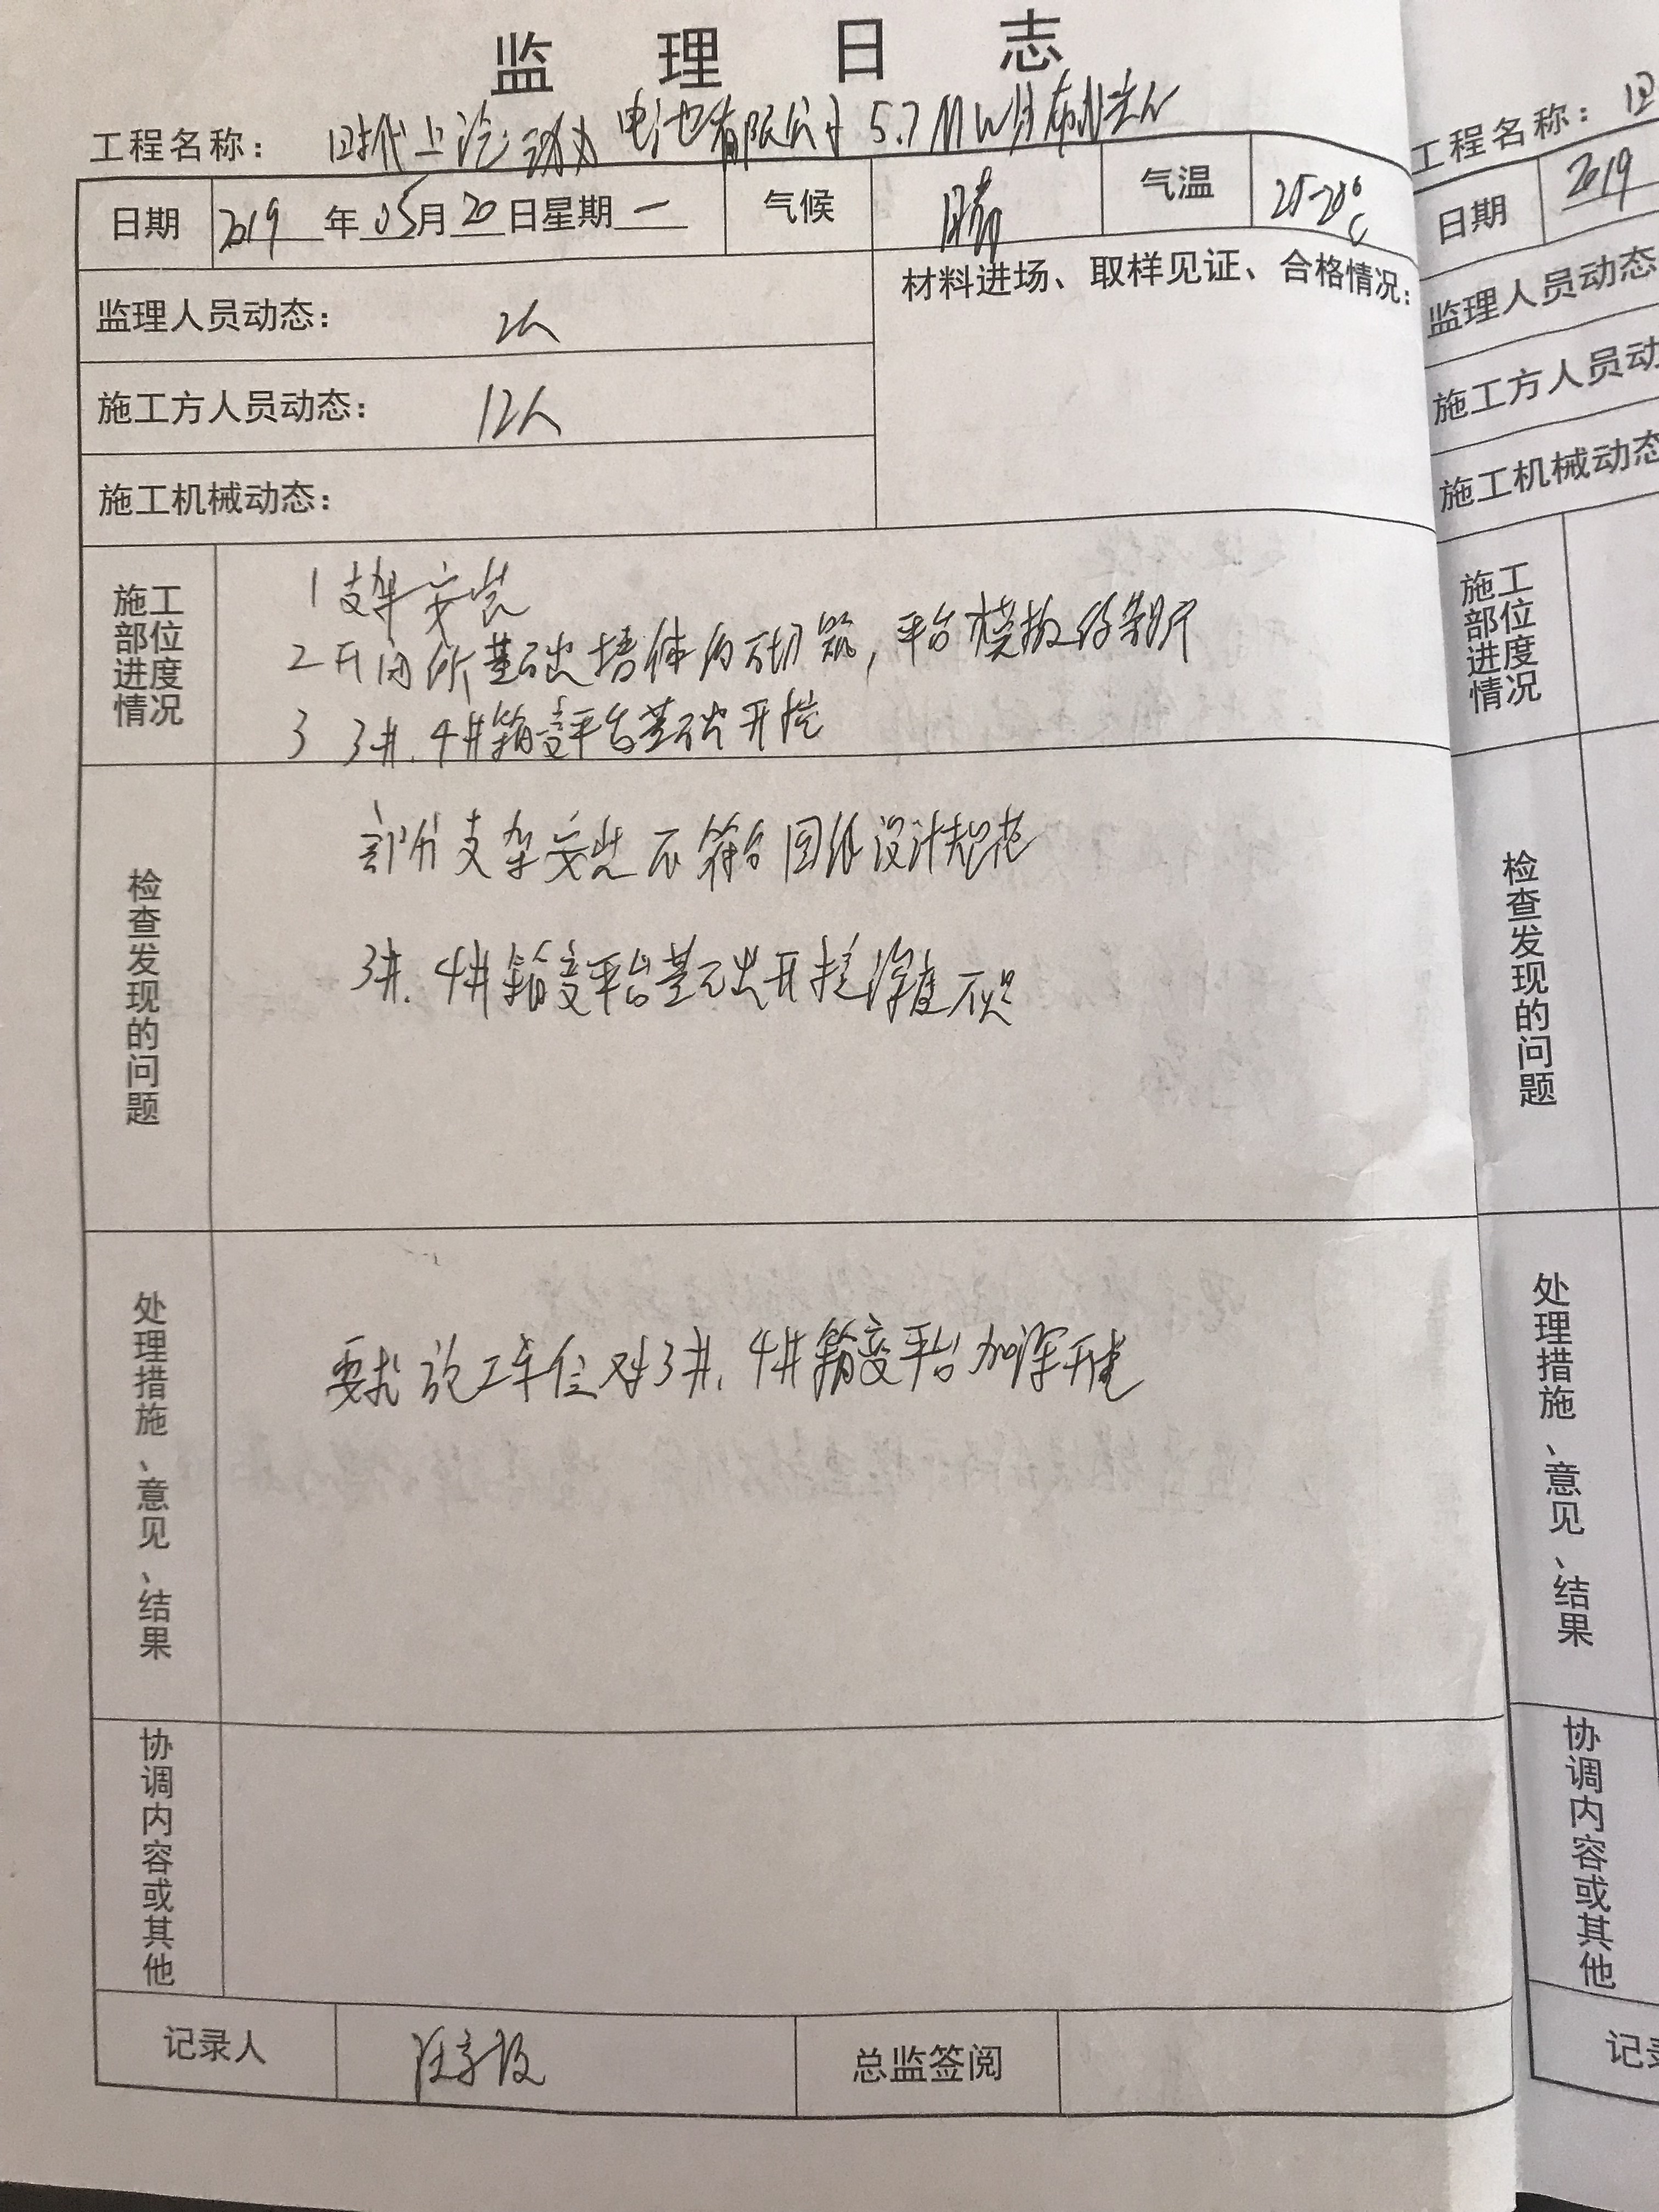 监理日志
工程名称： 时代上汽动力电池有限公司5.7MW分布式
日期 2019年05月20日星期一 气候 晴 气温 25-28°C
监理人员动态： 2人
材料进场、取样见证、合格情况：
施工方人员动态： 12人
施工机械动态：
施工部位进度情况
1 支架安装
2 开闭所基础墙体的砌筑，平台模板的制作
3 3#、4#箱变平台基础开挖
检查发现的问题
部分支架安装不符合图纸设计规范
3#、4#箱变平台基础开挖深度不足
处理措施、意见、结果
要求施工单位对3#、4#箱变平台加深开挖
协调内容或其他
记录人 总监签阅
工程名称：
日期 2019
监理人员动态
施工方人员动
施工机械动态
施工部位进度情况
检查发现的问题
处理措施、意见、结果
协调内容或其他
记录